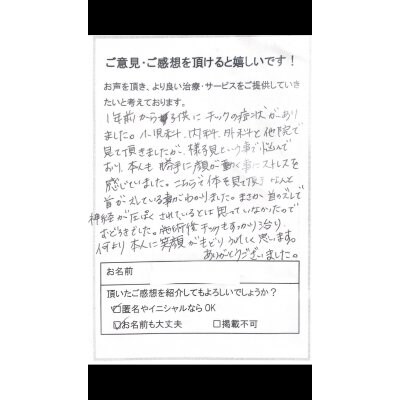 ご意見・ご感想を頂けると嬉しいです！
お声を頂き、より良い治療・サービスをご提供していき
たいと考えております。
1年前から子供にチックの症状があり
ました。小児科、内科、外科と他院で
見て頂きましたが、様子見という事で悩んで
おり、本人も勝手に顔が動く事にストレスを
感じていました。こちらで体を見て頂きなんと
首がズレている事がわかりました。まさか首のズレで
神経が圧ぱくされているとは思っていなかったので
おどろきでした。施術後チックもすっかり治り
何より本人に笑顔がもどりうれしく思います。
ありがとうございました。
お名前
頂いたご感想を紹介してもよろしいでしょうか？
☑匿名やイニシャルなら OK
☑お名前も大丈夫　□掲載不可